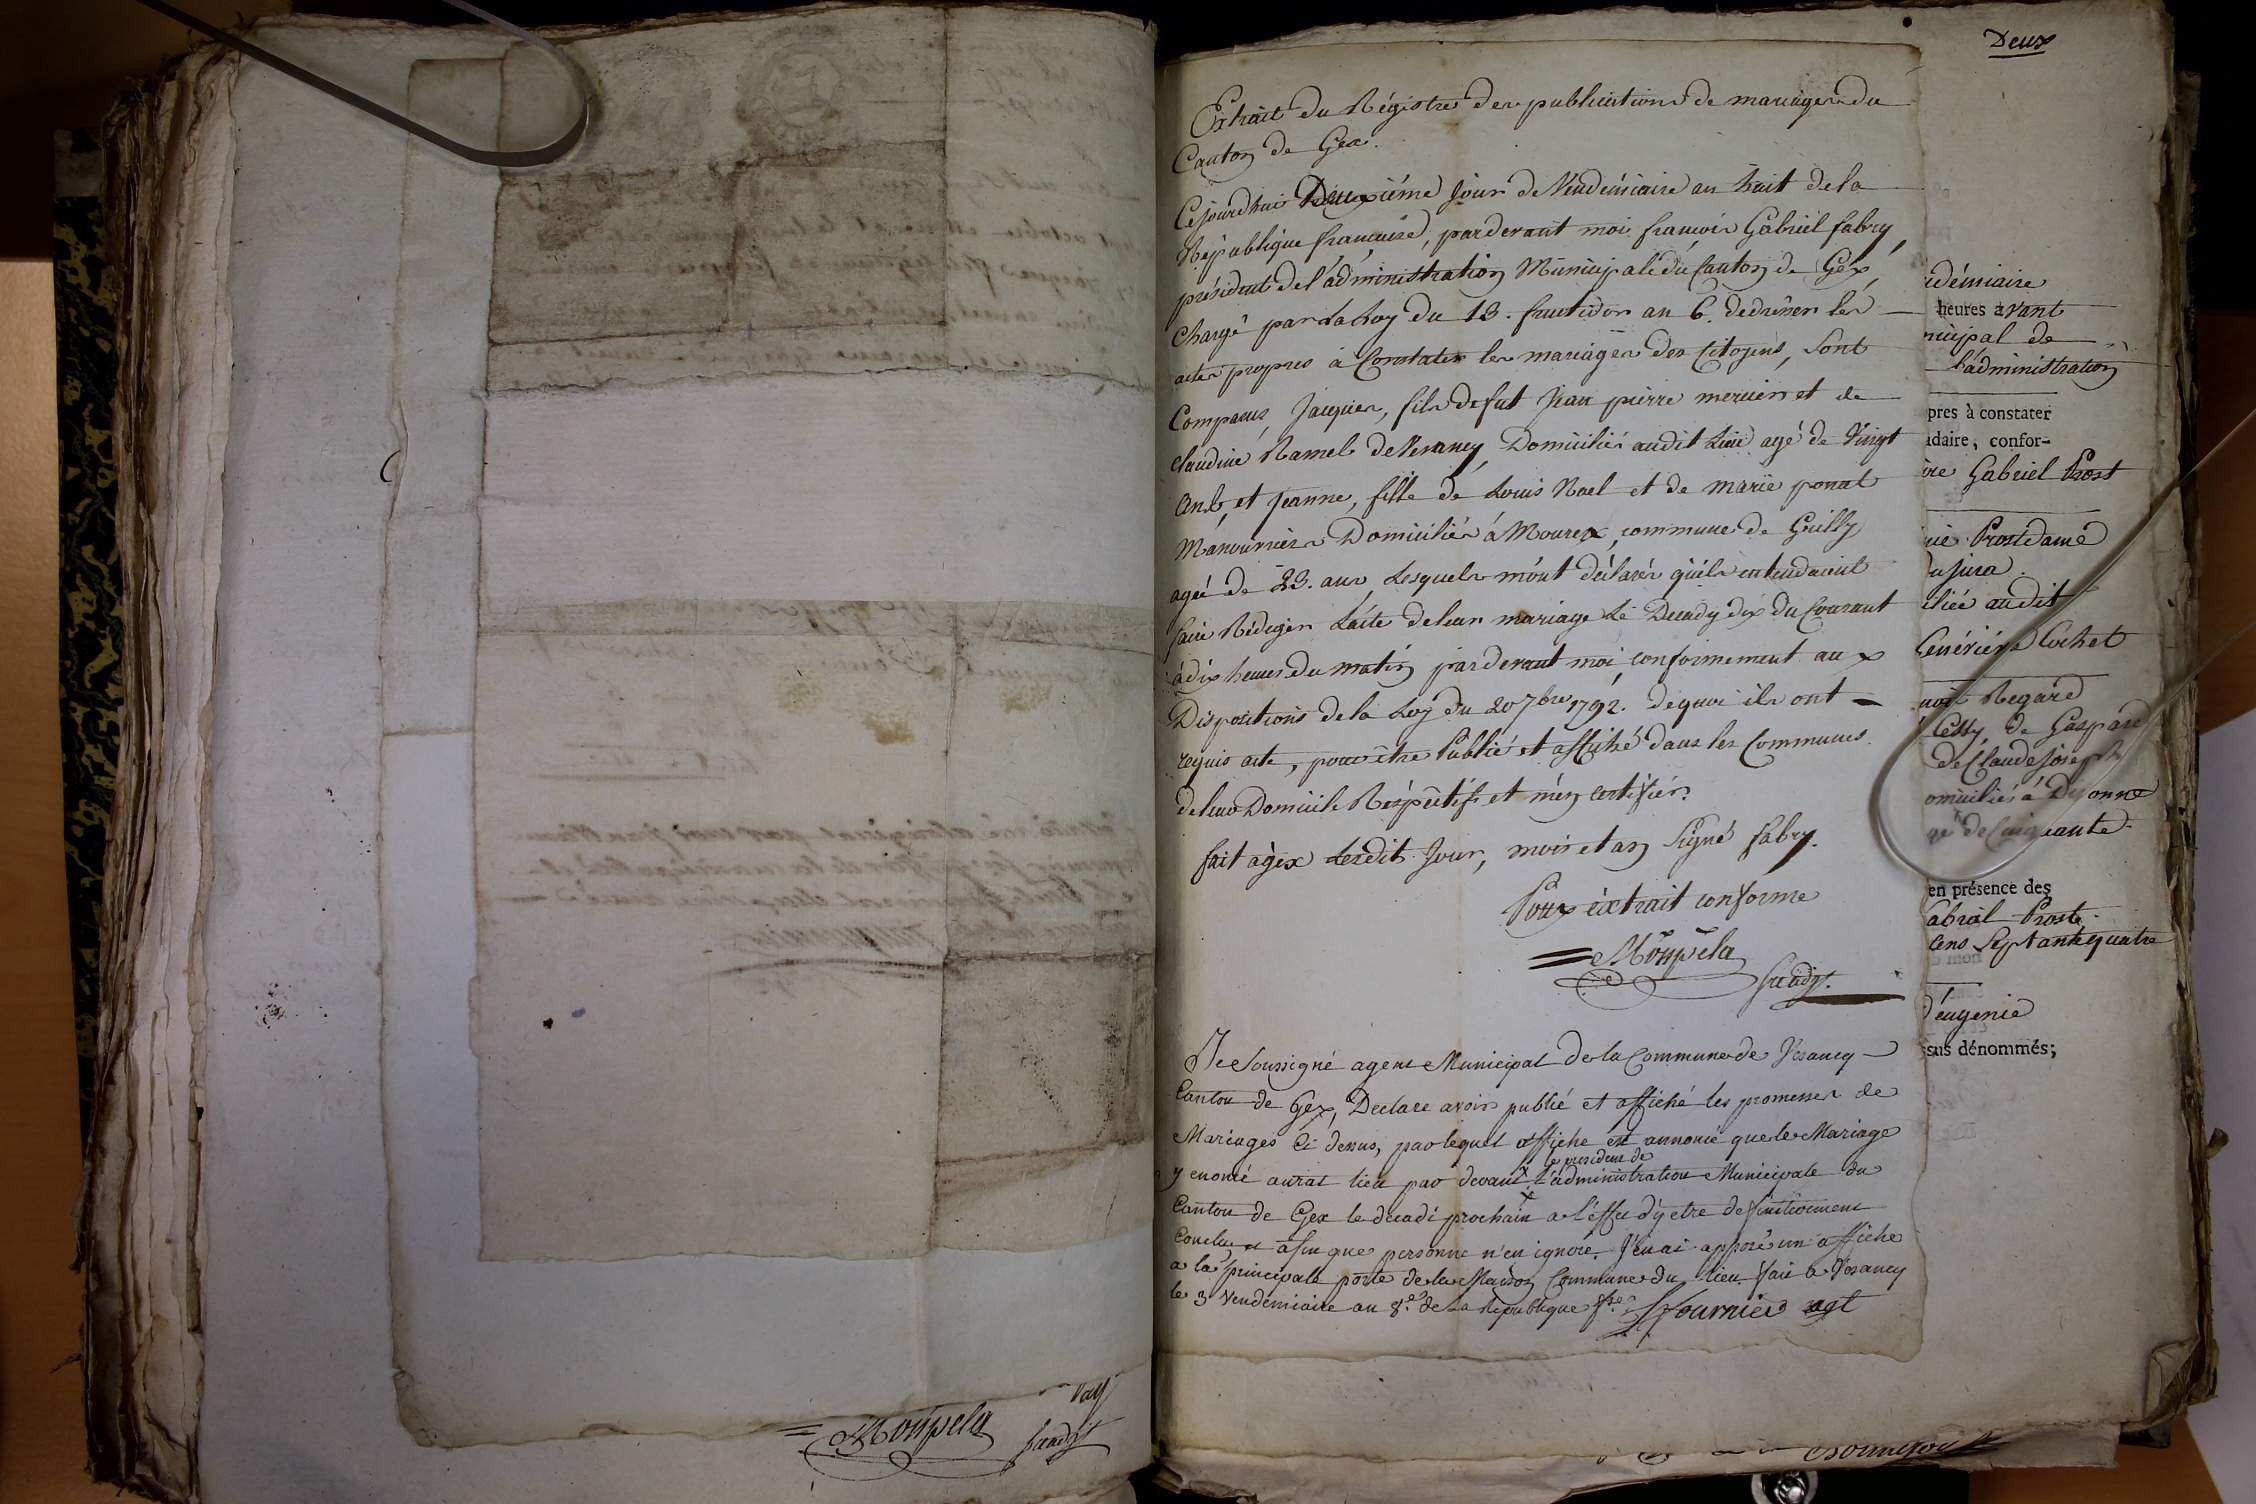 Deux
Extrait du Régistre des publications de mariages du
Canton de Gex.
Cejourdhui Deuxième Jour de Vendémiaire an huit de la
République française, pardevant moi françois Gabriel fabry,
président de l'administration Municipale du Canton de Gex,
chargé par la Loy du 13. fructidor an 6. de
actes propres à Constater les mariages des Citoyens, sont
Comparus, Jacques, fils defut Jean pierre mercier et de
claudine Ramel de Vesancy, Domicilié audit Lieu agé de Vingt
ans, et Jeanne, fille de Louis Nael et de marie ponat
Manouvriers Domiciliés à Mourex, commune de Grilly
agée de 23. ans, Lesquels m'ont déclarés qu'ils entendaient
faire Rédiger L'acte de leur mariage Le Decady dix du Courant
à dix heures du matin pardevant moi, conformement aux
Dispositions de la Loy du 20 7bre 1792. dequoi ils ont
requis acte, pour être Publié et affiché dans les Communes
deleur Domicile Réspéctifs et m'en certifier.
fait à gex Lesdit Jour, mois et an Signé fabry.
Pour extrait conforme
Moupela
Je Soussigné agent Municipal de la Commune de Vesancy
Canton de Gex, Declare avoir publié et affiché les promesses de
Mariages Ci dessus, par lequel affiche est annoncé que le Mariage
le president de
y enoncé aurat lieu par devant x l'administration Municipale du
Canton de Gex le decadi prochain a l'effet d'y etre definitivement
Conclu, et afin que personne n'en ignore. J'en ai apposé un affiche
a la principale porte de la Maison Commune du lieu. fait a Vesancy
le 3 Vendemiaire an 8.e de La Republique fse
fournier agt
idémiaire
heures avant
nicipal de
l'administration
pres à constater
adaire, confor-
Gabriel Prost
Prost dame
du jura.
iliée audit
Cochet
Regard
Cessy, de Gaspard
de Claude Joseph
omiciliés à Divonne
de Cinquante
en présence des
abrial Prost
cens Septante quatre
d'eugenie
ssus dénommés;
Moupela